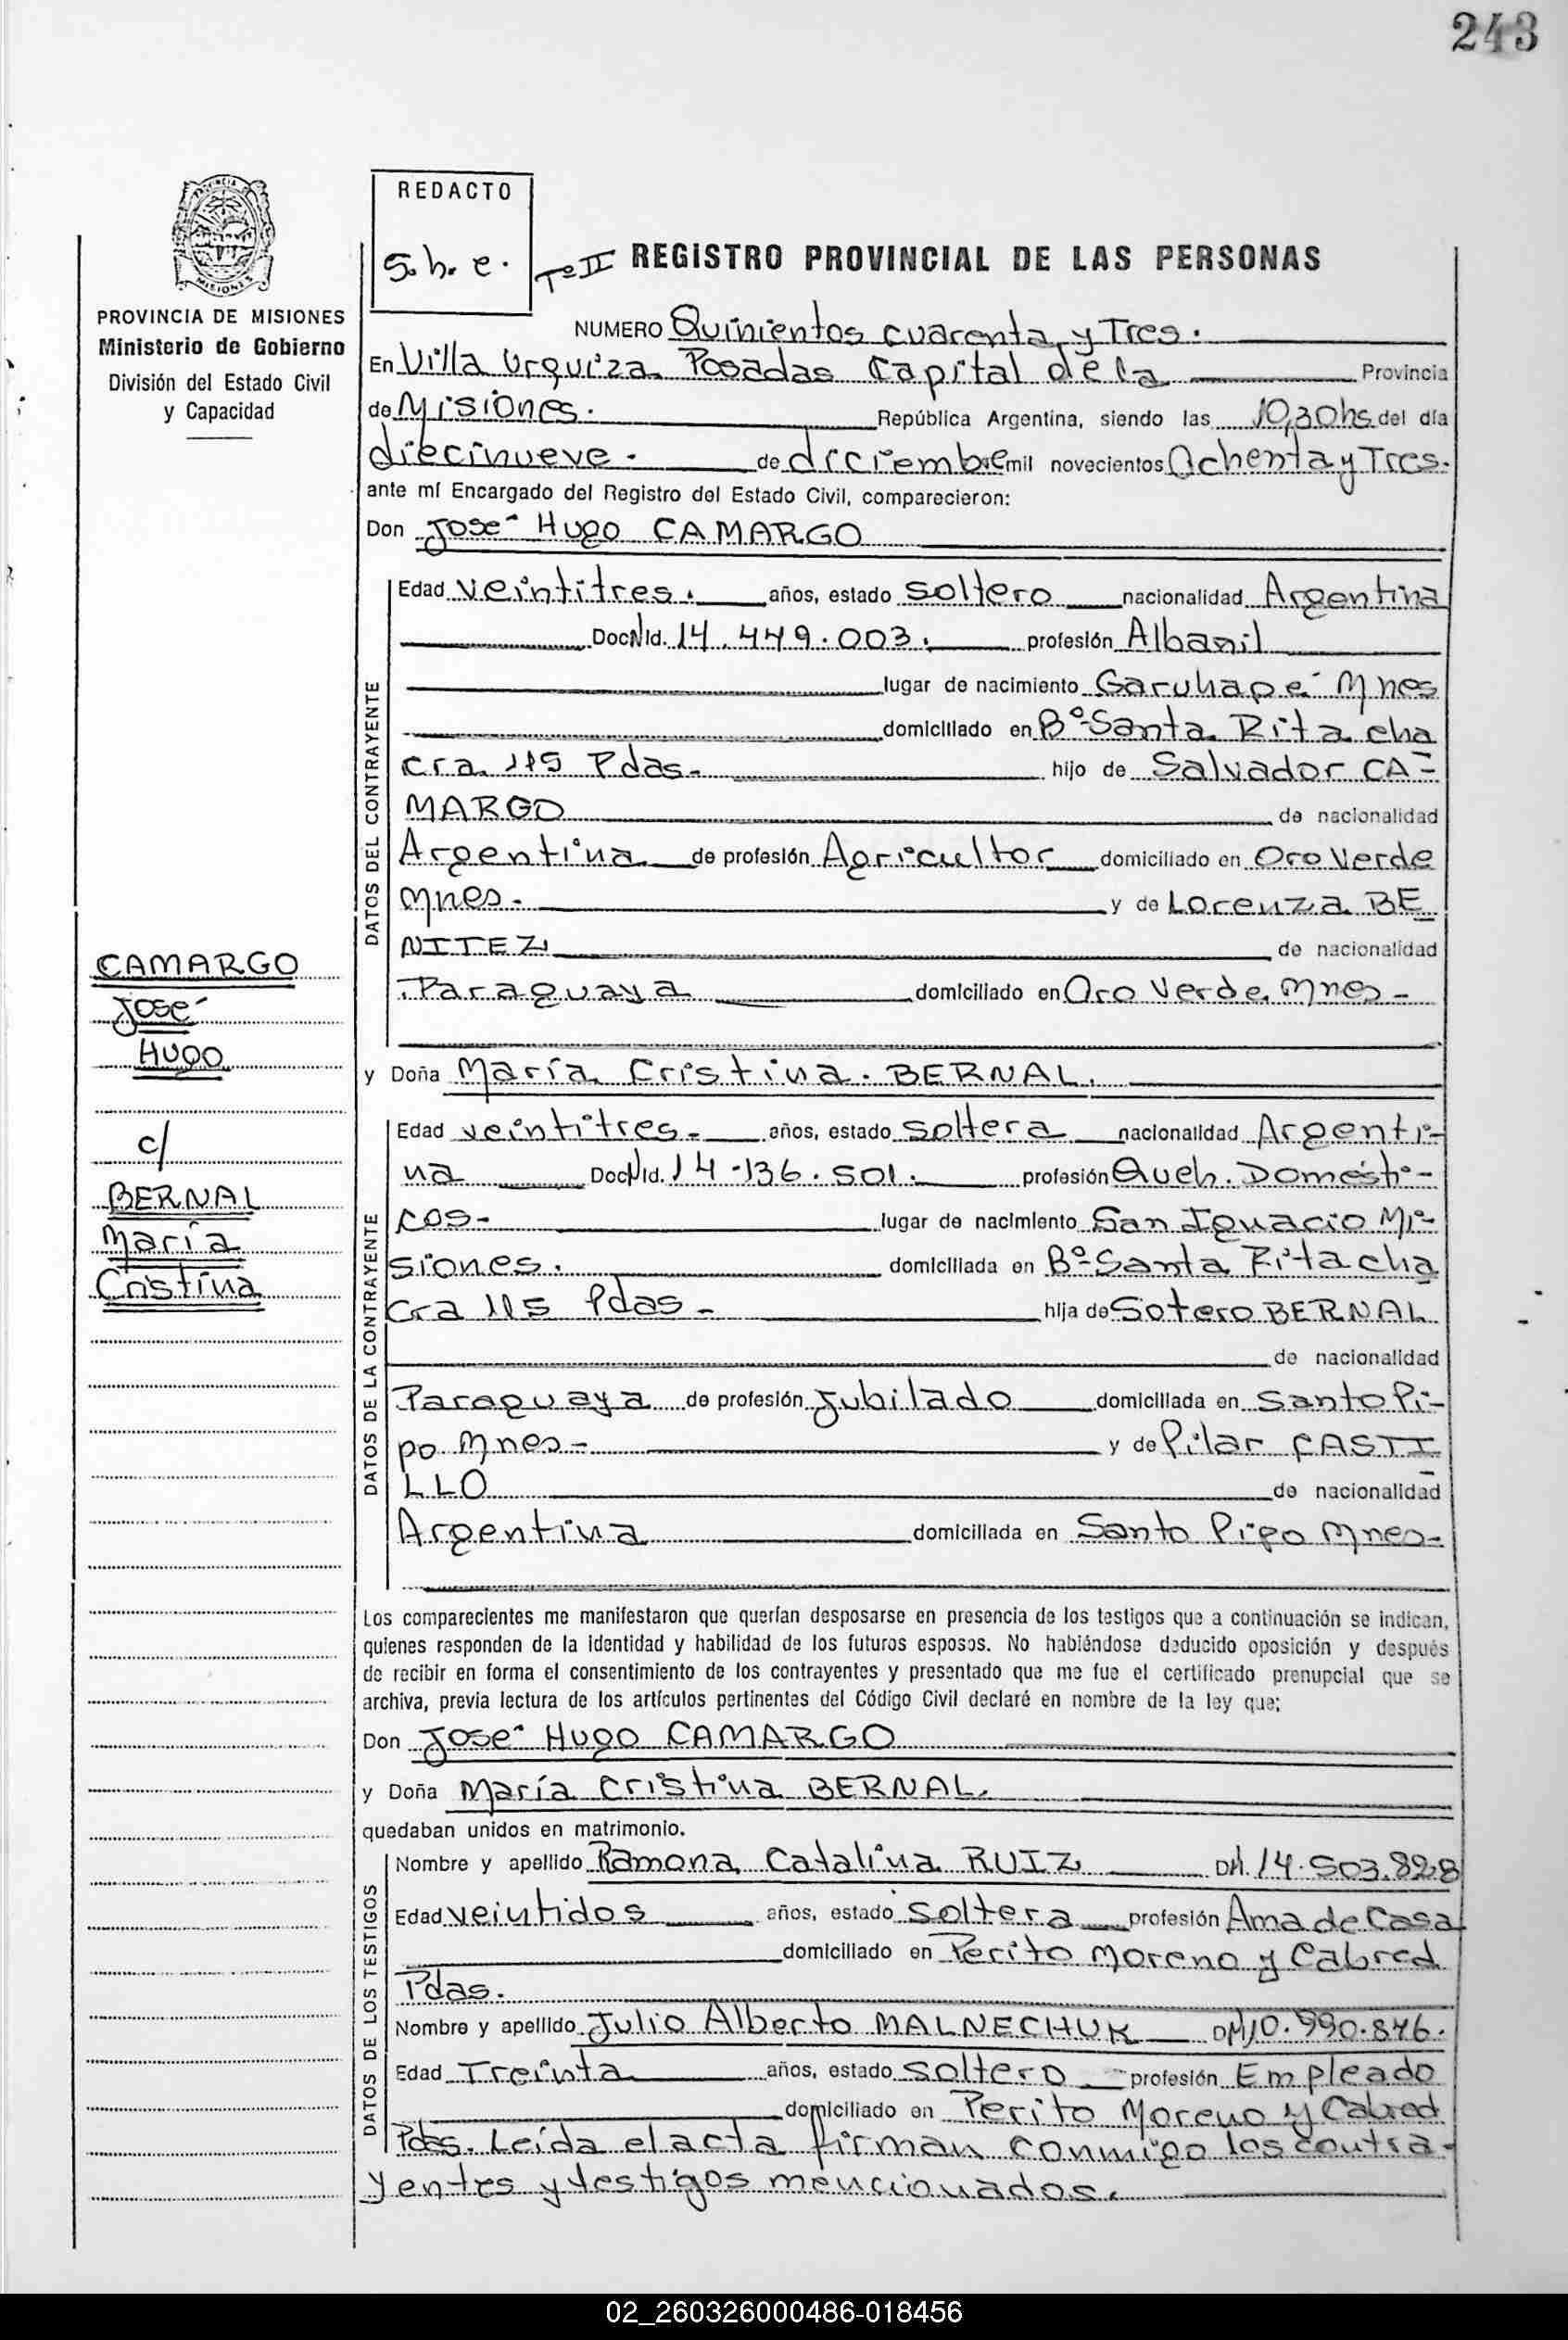 243
REDACTO
S.h.e.
Tº II REGISTRO PROVINCIAL DE LAS PERSONAS
PROVINCIA DE MISIONES
Ministerio de Gobierno
División del Estado Civil
y Capacidad
NUMERO Quinientos cuarenta y Tres.
En Villa Urquiza Posadas Capital de la Provincia
de Misiones. República Argentina, siendo las 10,30hs del día
diecinueve. de diciembre mil novecientos Ochenta y Tres.
ante mí Encargado del Registro del Estado Civil, comparecieron:
Don José Hugo CAMARGO
DATOS DEL CONTRAYENTE
Edad veintitres. años, estado soltero nacionalidad Argentina
Doc.N Id. 14.449.003. profesión Albanil
lugar de nacimiento Garuhapé Mnes
domiciliado en Bº-Santa Rita cha
cra 115 Pdas- hijo de Salvador CA-
MARGO de nacionalidad
Argentina de profesión Agricultor domiciliado en Oro Verde
Mnes. y de Lorenza BE
NITEZ de nacionalidad
Paraguaya domiciliado en Oro Verde Mnes-
CAMARGO
José
HUGO
c/
BERNAL
María
Cristina
y Doña María Cristina. BERNAL.
DATOS DE LA CONTRAYENTE
Edad veintitres- años, estado soltera nacionalidad Argenti-
na Doc.N Id. 14.136.501. profesión Queh. Domésti-
cos- lugar de nacimiento San Ignacio Mi-
siones. domiciliada en Bº-Santa Rita cha
cra 115 Pdas- hija de Sotero BERNAL
de nacionalidad
Paraguaya de profesión Jubilado domiciliada en Santo Pi-
po Mnes- y de Pilar CASTI
LLO de nacionalidad
Argentina domiciliada en Santo Pipo Mnes-
Los comparecientes me manifestaron que querían desposarse en presencia de los testigos que a continuación se indican,
quienes responden de la identidad y habilidad de los futuros esposos. No habiéndose deducido oposición y después
de recibir en forma el consentimiento de los contrayentes y presentado que me fue el certificado prenupcial que se
archiva, previa lectura de los artículos pertinentes del Código Civil declaré en nombre de la ley que;
Don José HUGO CAMARGO
y Doña María Cristina BERNAL.
quedaban unidos en matrimonio.
DATOS DE LOS TESTIGOS
Nombre y apellido Ramona Catalina RUIZ DNI. 14.503.828
Edad veintidos años, estado soltera profesión Ama de Casa
domiciliado en Perito Moreno y Cabred
Pdas.
Nombre y apellido Julio Alberto MALNECHUK DNI 10.990.876.
Edad Treinta años, estado soltero profesión Empleado
domiciliado en Perito Moreno y Cabred
Pdas. Leída el acta firman conmigo los contra-
yentes y testigos mencionados.
02_260326000486-018456